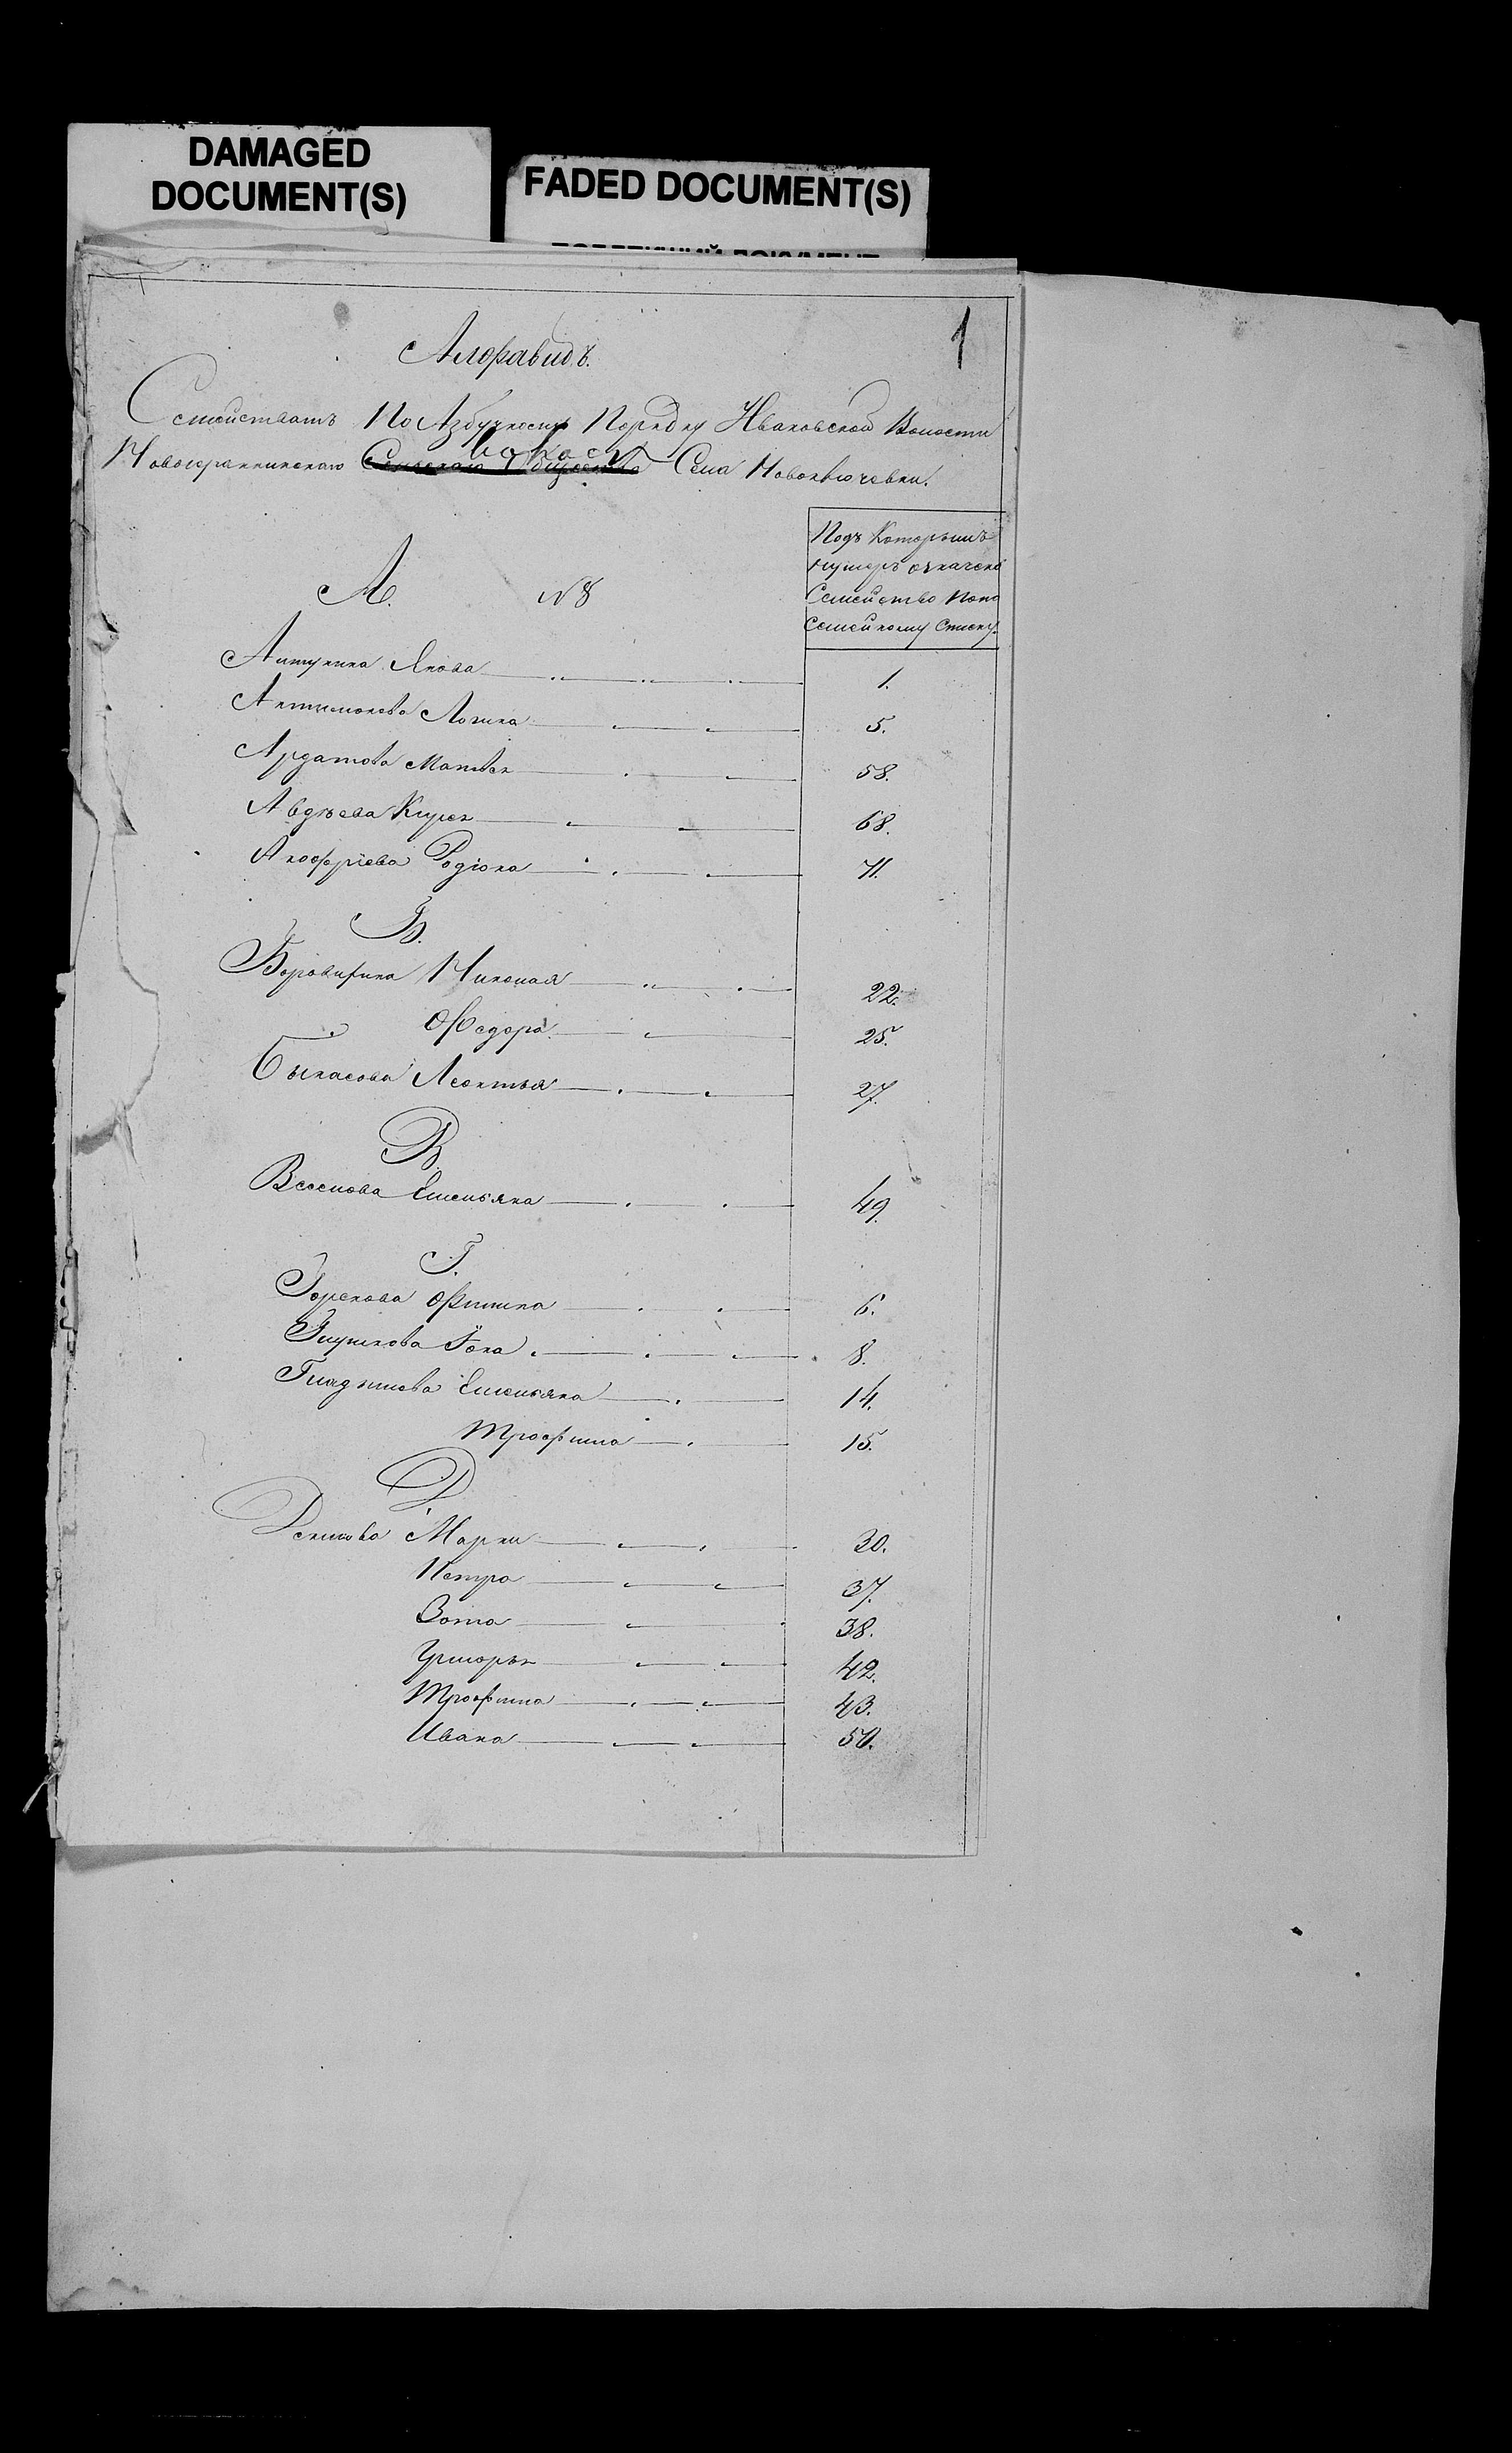 DAMAGED
DOCUMENT(S)
FADED DOCUMENT(S)
1
Алфавидъ.
Семействамъ По Азбучному Порядку Ивановской Волости
волости
Новогеранкинскаго Сельскаго Общества Села Новоключевки.
Подъ Которымъ
нумеръ означено
Семейство Попо
семейному Списку.
А. №8
Антукина Якова 1.
Антимонова Логина 5.
Ардатова Матвея 58.
Авдѣева Кирея 68.
Анофріева Родіона 71.
Б.
Боровикина Николая 22.
" Ѳедора 25.
Быкасова Леонтья 27.
В.
Веселова Емельяна 49.
Г.
Горекова Ѳимина 6.
Глушкова Іона 8.
Гладышова Емельяна 14.
Трофима 15.
Д.
Денисова Марки 30.
Петра 37.
Зота 38.
Григорья 42.
Трофима 43.
Ивана 50.